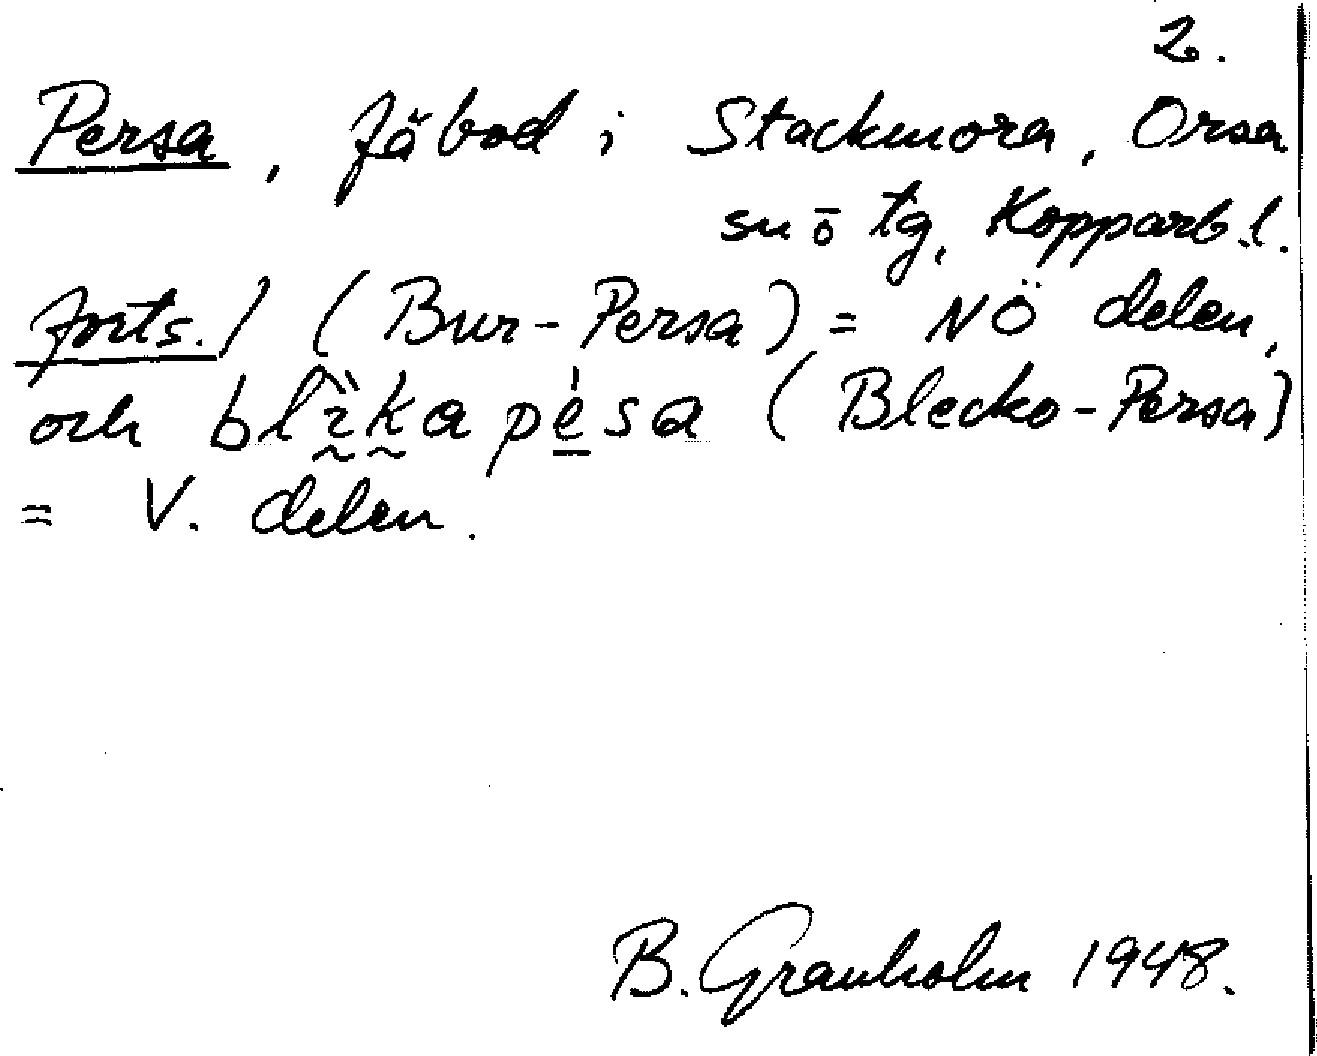 2.
Persa, fäbod i Stackmora, Orsa
sn ō tg, Kopparb.l.
forts./ (Bur-Persa) = NÖ delen,
och pesa (Blecko-Persa)
= V. delen.
B. Granholm 1948.